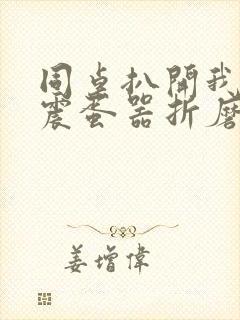 同桌扒開我
震蛋器折磨
姜增偉